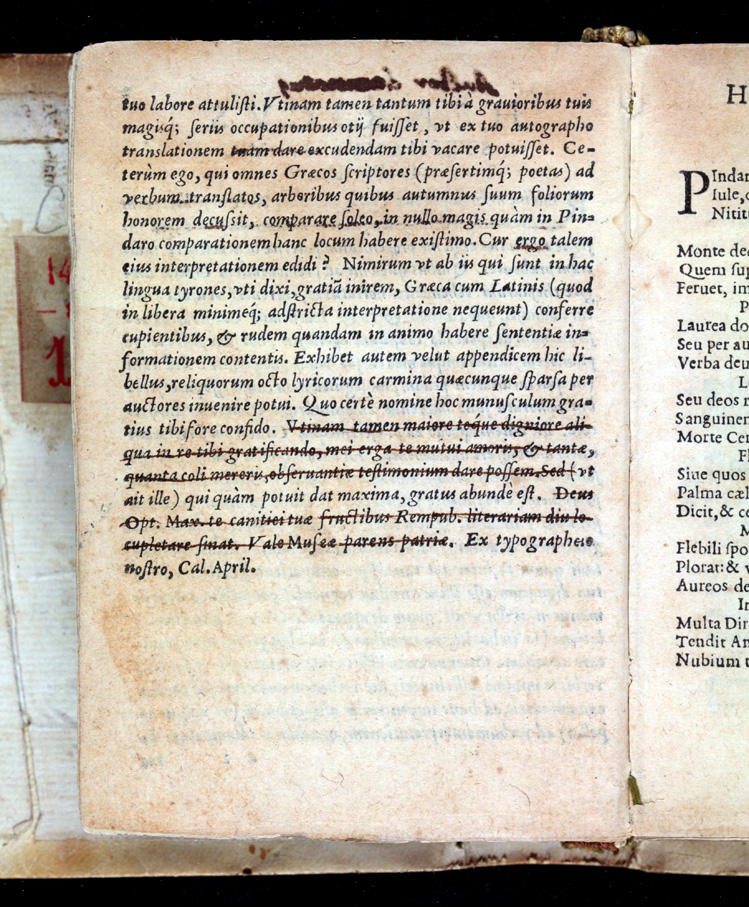 tuo labore attulisti. Vtinam tamen tantum tibi à grauioribus tuis
magisq́; seriis occupationibus otij fuisset, vt ex tuo autographo
translationem tuam dare excudendam tibi vacare potuisset. Ce-
terùm ego, qui omnes Græcos scriptores (præsertimq́; poetas) ad
verbum translatos, arboribus quibus autumnus suum foliorum
honorem decussit, comparare soleo, in nullo magis quàm in Pin-
daro comparationem hanc locum habere existimo. Cur ergo talem
eius interpretationem edidi? Nimirum vt ab iis qui sunt in hac
lingua tyrones, vti dixi, gratiã inirem, Græca cum Latinis (quod
in libera minimeq́; adstricta interpretatione nequeunt) conferre
cupientibus, & rudem quandam in animo habere sententiæ in-
formationem contentis. Exhibet autem velut appendicem hic li-
bellus, reliquorum octo lyricorum carmina quæcunque sparsa per
auctores inuenire potui. Quo certè nomine hoc munusculum gra-
tius tibi fore confido. Vtinam tamen maiore téque digniore ali-
qua in re tibi gratificando, mei erga te mutui amoris, & tantæ,
quanta coli mereris, obseruantiæ testimonium dare possem. Sed (vt
ait ille) qui quàm potuit dat maxima, gratus abundè est. Deus
Opt. Max. te canitiei tuæ fructibus Rempub. literariam diu lo-
cupletare sinat. Vale Museæ parens patriæ. Ex typographeio
nostro, Cal. April.
H
PIndar
Iule,
Nitit
Monte de
Quem sup
Feruet, im
P
Laurea do
Seu per au
Verba deu
L
Seu deos r
Sanguinem
Morte Cen
Fl
Siue quos
Palma cæl
Dicit, & ce
M
Flebili spo
Plorat: & v
Aureos de
In
Multa Dir
Tendit An
Nubium t